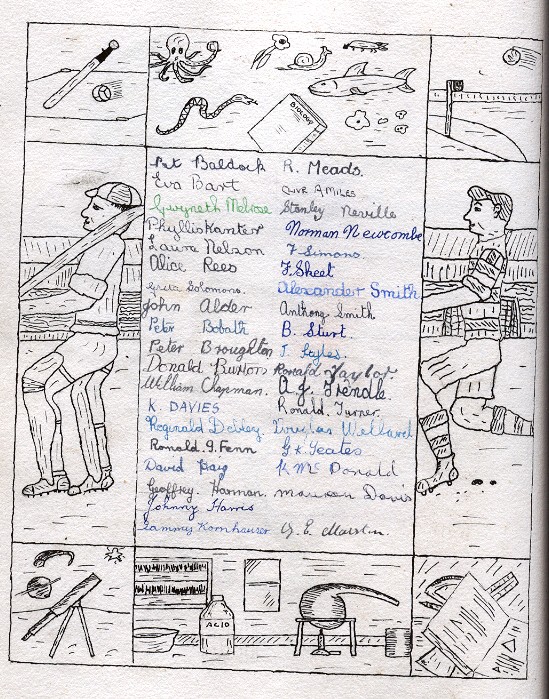 BIOLOGY
Pat Baldock
Eva Bart
Gwyneth Melrose
Phyllis Kanter
Laura Nelson
Alice Rees
Greta Solomons.
John Alder
Peter Bobath
Peter Broughton
Donald Burton
William Chapman.
K. DAVIES
Reginald Debley
Ronald. G. Fenn
David
Geoffrey. Harman.
Johnny Harris
Sammy Kornhauser
R. Meads.
CLIVE A MILES
Stanley Neville
Norman Newcombe
F. Simons.
F. Skeet
Alexander Smith
Anthony Smith
B. Sturt.
J. Sayles.
Ronald Taylor.
A. J. Trendle.
Ronald. Turner.
Douglas Wellard
G. K. Yeates
K. Mc Donald
Maureen Davis
E. Marston.
ACID